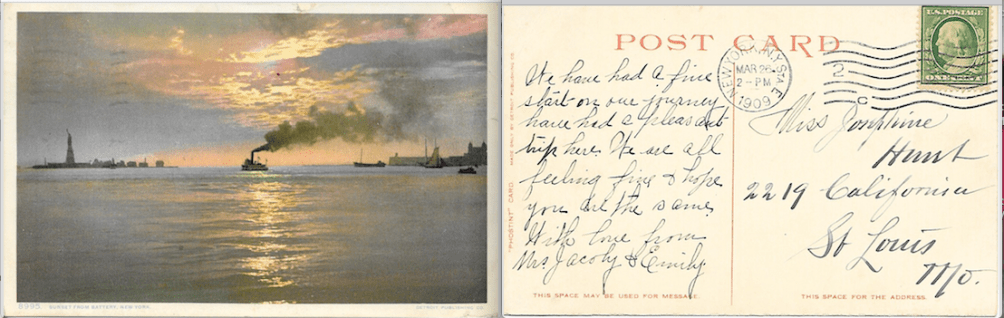 8995. SUNSET FROM BATTERY, NEW YORK.
DETROIT PUBLISHING CO.
POST CARD
"PHOSTINT" CARD. MADE ONLY BY DETROIT PUBLISHING CO.
NEW YORK, N.Y. STA E
MAR 26
2 - PM
1909
2
C
U.S. POSTAGE
ONE CENT
We have had a fine
start on our journey
have had a pleasant
trip here. We are all
feeling fine & hope
you are the same.
With love from
Mrs. Jacoby & Emily
THIS SPACE MAY BE USED FOR MESSAGE.
Miss Josephine
Hunt
2219 California
St Louis
Mo.
THIS SPACE IS FOR THE ADDRESS.